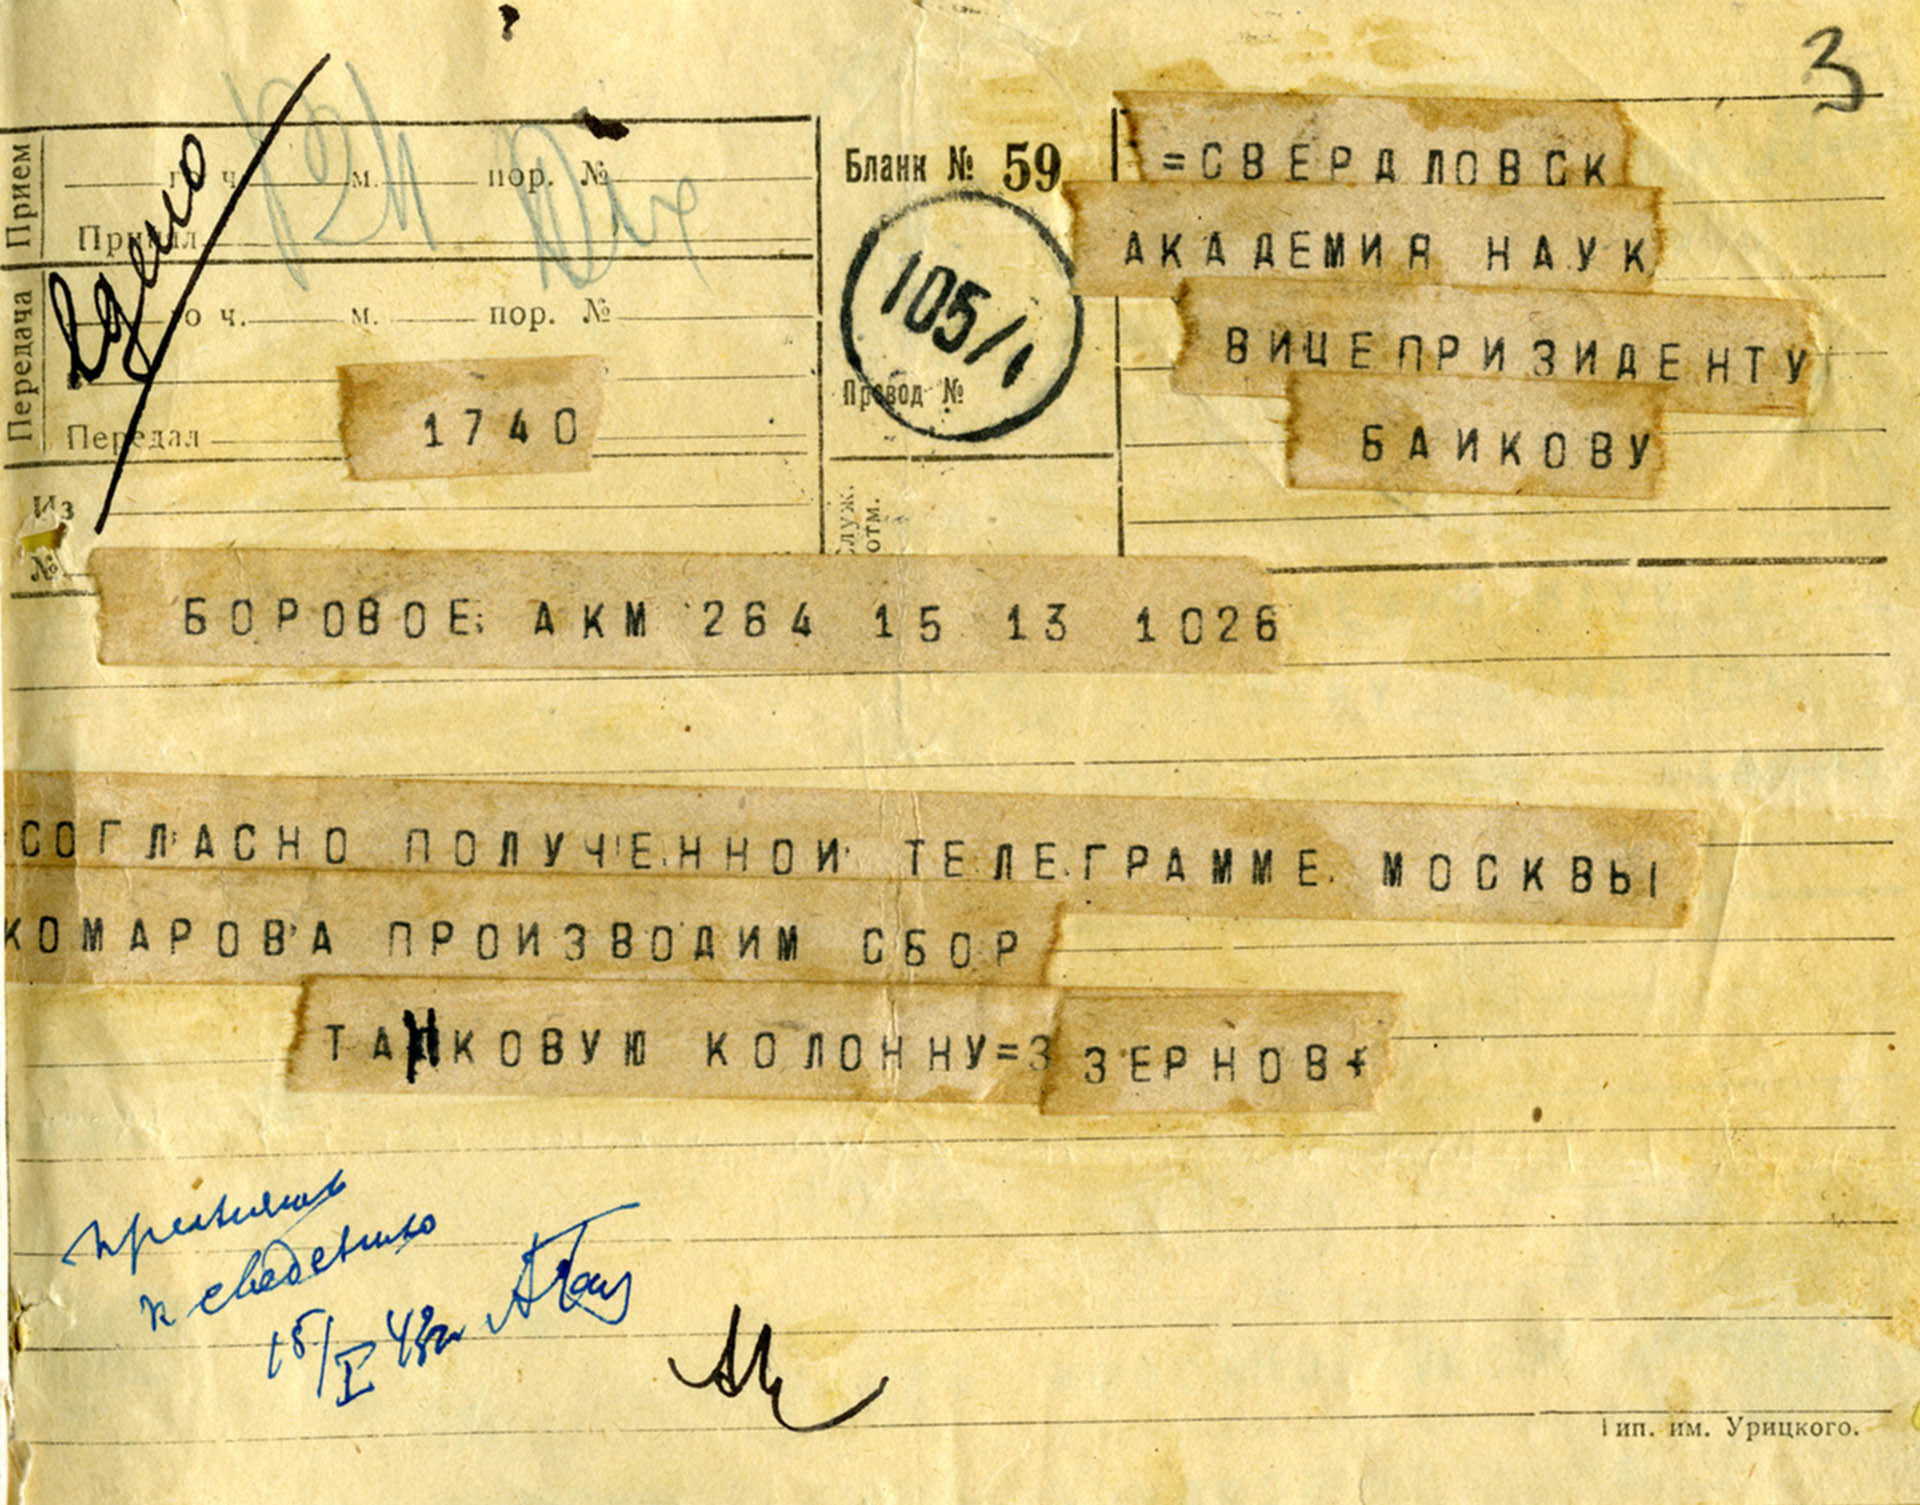 3
Прием
го ч. м. пор. №
Принял
Передача
го ч. м. пор. №
Передал
1740
Из
№
Бланк № 59
105/1
Провод №
Служ.
отм.
=СВЕРДЛОВСК
АКАДЕМИЯ НАУК
ВИЦЕПРИЗИДЕНТУ
БАИКОВУ
БОРОВОЕ АКМ 264 15 13 1026
СОГЛАСНО ПОЛУЧЕННОИ ТЕЛЕГРАММЕ МОСКВЫ
КОМАРОВА ПРОИЗВОДИМ СБОР
ТАНКОВУЮ КОЛОННУ=З ЗЕРНОВ+
принять
к сведению
15/I 43г
Тип. им. Урицкого.